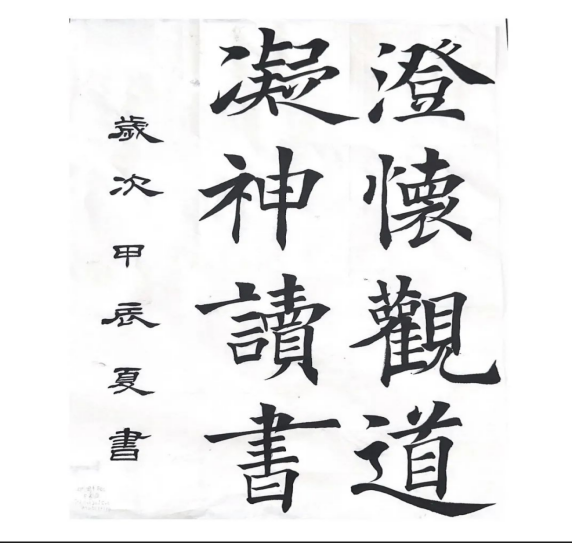 澄懷觀道
凝神讀書
歲次甲辰夏書